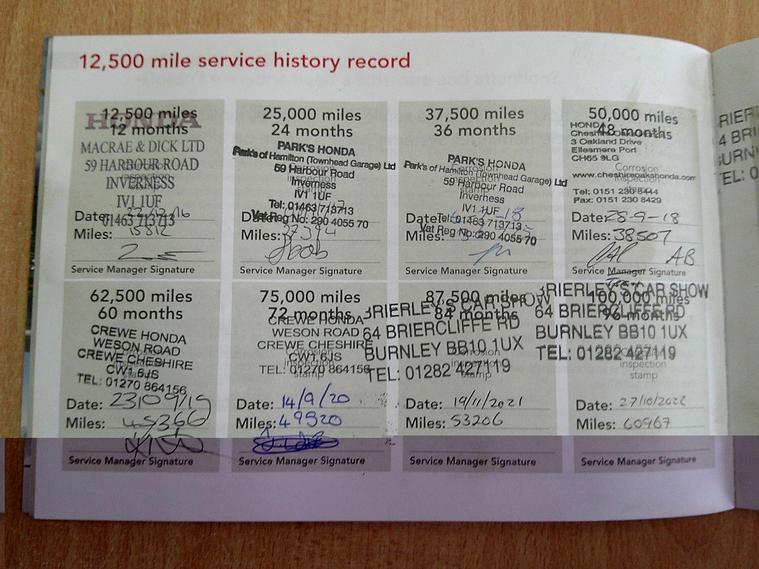 12,500 mile service history record
12,500 miles
12 months
HONDA
MACRAE & DICK LTD
59 HARBOUR ROAD
INVERNESS
IV1 1UF
01463 713713
Date:
Miles: 15812
Service Manager Signature
25,000 miles
24 months
PARK'S HONDA
Park's of Hamilton (Townhead Garage) Ltd
59 Harbour Road
Inverness
IV1 1UF
Tel: 01463 713713
Vat Reg No: 290 4055 70
Date:
Miles:
Service Manager Signature
37,500 miles
36 months
PARK'S HONDA
Park's of Hamilton (Townhead Garage) Ltd
59 Harbour Road
Inverness
IV1 1UF
Tel: 01463 713713
Vat Reg No: 290 4055 70
Date: 18
Miles:
Service Manager Signature
50,000 miles
48 months
HONDA
Cheshire Oaks
3 Oakland Drive
Ellesmere Port
CH65 9LG
Corrosion
inspection
stamp
www.cheshireoakshonda.com
Tel: 0151 230 8444
Fax: 0151 230 8429
Date: 28-9-18
Miles: 38507
AB
Service Manager Signature
62,500 miles
60 months
CREWE HONDA
WESON ROAD
CREWE CHESHIRE
CW1 6JS
TEL: 01270 864156
Date: 23/09/19
Miles: 45366
Service Manager Signature
75,000 miles
72 months
CREWE HONDA
WESON ROAD
CREWE CHESHIRE
CW1 6JS
TEL: 01270 864156
Date: 14/9/20
Miles: 49520
Service Manager Signature
87,500 miles
84 months
BRIERLEY'S CAR SHOW
64 BRIERCLIFFE RD
BURNLEY BB10 1UX
Corrosion
inspection
stamp
TEL: 01282 427119
Date: 19/11/2021
Miles: 53206
Service Manager Signature
100,000 miles
96 months
BRIERLEY'S CAR SHOW
64 BRIERCLIFFE RD
BURNLEY BB10 1UX
TEL: 01282 427119
Date: 27/10/2022
Miles: 60967
Service Manager Signature
RIER
4 BRI
BURN
TEL: 0